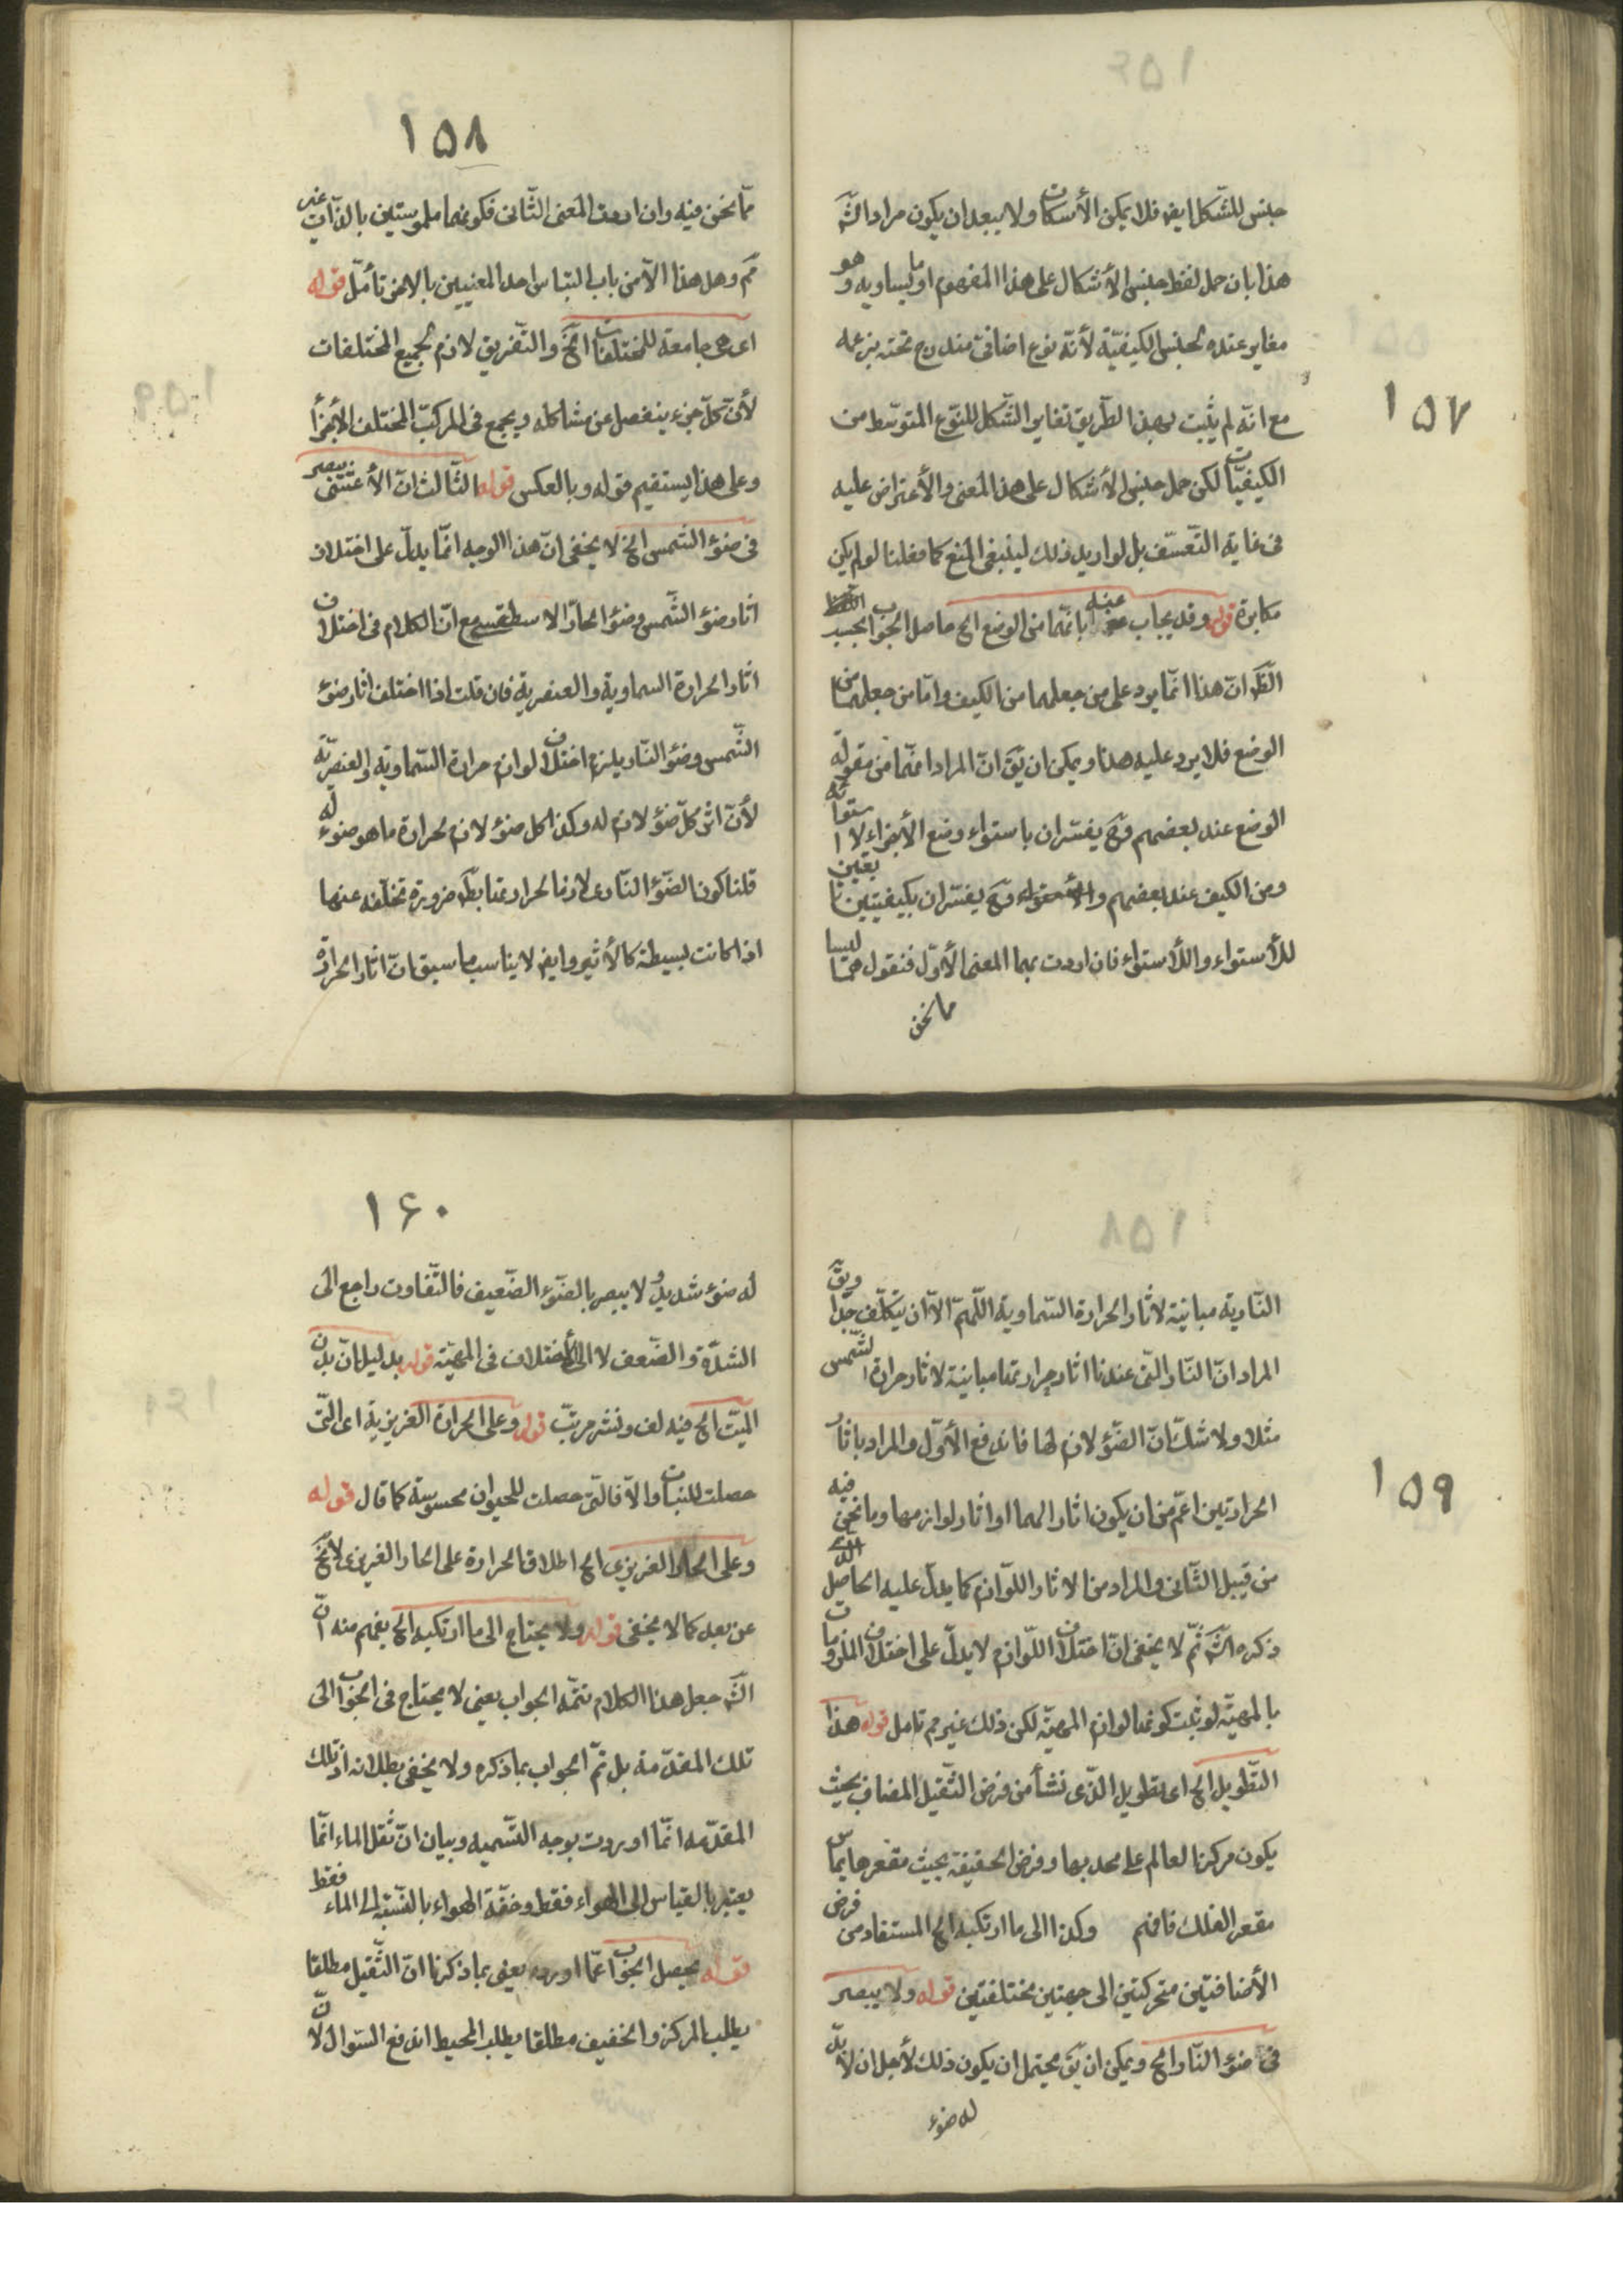 ١٥٧
جنس للشكل ايض فلا يمكن الأسكات ولا يبعد ان يكون مراد الش
هذا بان حمل لفظ جنس الأشكال على هذا المفهوم او ما يساويه وهو
مغاير عنده لجنس الكيفيّة لأنّه نوع اضافى مندرج تحته بزعمه
مع انّه لم يثبت بهذا الطّريق تغاير الشّكل للنّوع المتوسّط من
الكيفيّات لكن حمل جنس الأشكال على هذا المعنى والأعتراض عليه
فى غاية التّعسّف بل لو اريد ذلك لينبغى المنع كما فعلنا لو لم يكن
مكابرة قوله وقد يجاب عنه بانّهما من الوضع الخ حاصل الجواب
الظّ انّ هذا انّما يرد على من جعلهما من الكيف وامّا من جعلهما من
الوضع فلا يرد عليه هذا ويمكن ان يقّ انّ المراد انّهما من مقولة
الوضع عند بعضهم وحّ يفسّران باستواء وضع الأجزاء ولا استوائه
ومن الكيف عند بعضهم وحّ يفسّران بكيفيتين تابعتين
للأستواء واللاّأستواء فان اردت بهما المعنى الأوّل فنقول هما ليسا
ما نحن
١٥٨
ممّا نحن فيه وان اردت المعنى الثّانى فكونهما ملموستين بالذّات غير
مم وهل هذا الاّ من باب التباس احد المعنيين بالاخر تأمّل قوله
اى هى جامعة للمختلفات الخّ والتّفريق لازم لجميع المختلفات
لأنّ كلّ جزء ينفصل عن مشاكله ويجمع فى المركّب المختلف الأجزأ
وعلى هذا يستقيم قوله وبالعكس قوله الثّالث انّ الأعشى يبصر
فى ضوء الشمس الخ لا يخفى انّ هذا الوجه انّما يدلّ على اختلاف
اثار ضوء الشّمس وضوء الحارّ الاسطقسى مع انّ الكلام فى اختلاف
اثار الحرارة السماوية والعنصرية فان قلت اذا اختلف اثار ضوء
الشّمس وضوء النّار يلزم اختلاف لوازم حرارة السّماوية والعنصريّة
لأنّ اثر كلّ ضوء لازم له وكذا كل ضوء لازم لحرارة ما هو ضوء له
قلنا كون الضّوء النّارى لازما لحرارتها بط ضرورة تخلّفه عنها
اذا كانت بسيطة كالأثير وايض لا يناسب ما سبق انّ اثار الحرارة
١٥٩
النّارية مباينة لاثار الحرارة السّماوية اللّهمّ الاّ ان يتكلّف جدّا ويقّ
المراد انّ النّار الّتى عندنا اثار حرارتها مباينة لاثار حرارة الشّمس
مثلا ولا شكّ انّ الضّوء لازم لها فاندفع الأوّل والمراد باثار
الحرارتين اعمّ من ان يكون اثارا لهما او اثار لوازمها وما نحن فيه
من قبيل الثّانى والمراد من الاثار اللّوازم كما يدلّ عليه الحاصل الّذى
ذكره الشّ ثمّ لا يخفى انّ اختلاف اللّوازم لا يدلّ على اختلاف الملزومات
بالمهيّة لو ثبت كونها لوازم المهيّة لكن ذلك غير مم تامل قوله هذا
التّطويل الخ اى تطويل الّذى نشأ من فرض الثّقيل المضاف بحيث
يكون مركز العالم على محدبها وفرض الخفيفة بحيث مقعرها يماس
مقعر الفلك فافهم وكذا الى ما ارتكبه الخ المستفاد من فرض
الأضافتين متحركتين الى جهتين مختلفتين قوله ولا يبصر
فى ضوء النّار الخ ويمكن ان يقّ يحتمل ان يكون ذلك لأجل ان لا بدّ
له ضوء
١٦٠
له ضوء شديد ولا يبصر بالضّوء الضّعيف فالتّفاوت راجع الى
الشدّة والضّعف لا الى الأختلاف فى المهيّة قوله بدليل انّ بدن
الميّت الخ فيه لف ونشر مرتّب قوله وعلى الحرارة الغريزية اى الّتى
حصلت للنبات والاّ فالّتى حصلت للحيوان محسوسة كما قال قوله
وعلى الحار الغريزى الخ اطلاق الحرارة على الحار الغريزى لا يخّ
عن بعد كما لا يخفى قوله ولا يحتاج الى ما ارتكبه الخ يفهم منه انّ
الشّ جعل هذا الكلام تتمّة الجواب يعنى لا يحتاج فى الجواب الى
تلك المقدّمة بل تمّ الجواب بما ذكره ولا يخفى بطلانه اذ تلك
المقدّمه انّما اوردت بوجه التّسميه وبيان انّ ثقل الماء انّما
يعتبر بالقياس الى الهواء فقط وخفّة الهواء بالنّسبة الى الماء فقط
قوله يحصل الجواب عمّا اورده يعنى بما ذكرنا انّ الثّقيل مطلقا
يطلب المركز والخفيف مطلقا يطلب المحيط اندفع السّوال لانّ